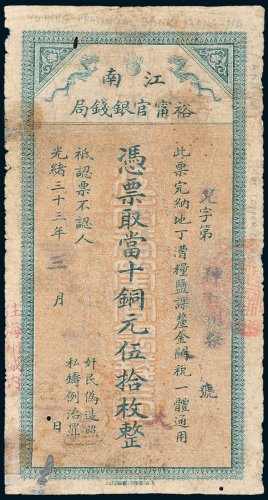 江南
裕甯官銀錢局
此票完納地丁漕糧鹽課釐金關稅一體通用
字第 號
憑票取當十銅元伍拾枚整
祇認票不認人
光緒三十三年三月 日
奸民偽造照
私鑄例治罪